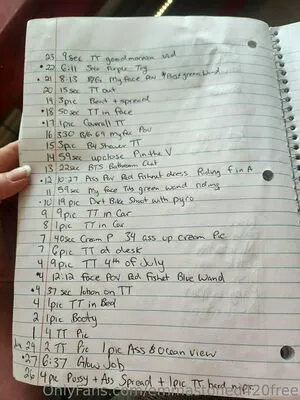 25 9sec TT good mornin vid
• 22 6:11 Solo Purple Toy
• 21 8:13 B/G My face POV + Best green Wand
20 15sec TT out
19 3pic Bent + spread
• 18 50sec TT in face
• 17 1pic Coverall TT
16 3:30 B/G 69 my fac POV
15 5pic By Shower TT
14 59sec upclose Pin the V
13 22sec BTS Bathroom Chat
• 12 10:27 Ass POV Red Fishnet dress Riding F in A
11 59sec My face Tits green wand riding
• 10 19pic Dirt Bike Shoot with pyro
9 9pic TT in Car
8 1pic TT in Car
7 40sec Cream P 34 ass up cream Pic
7 6pic TT at desk
4 9pic TT 4th of July
• 4 12:12 Face POV Red Fishnet Blue Wand
• 4 37sec lotion on TT
4 1pic TT in Bed
2 1pic Booty
1 4 TT Pic
29 2 TT Pic 1pic Ass & Ocean view
• 27 6:37 Blow Job
26 4pic Pussy + Ass Spread + 1pic TT hard nips